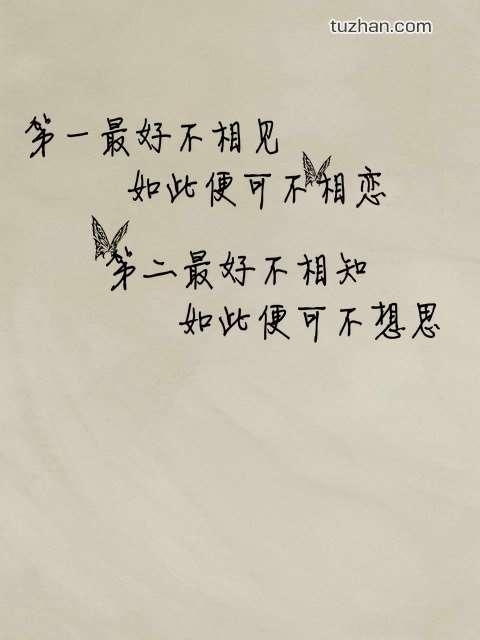 tuzhan.com
第一最好不相见
如此便可不相恋
第二最好不相知
如此便可不想思